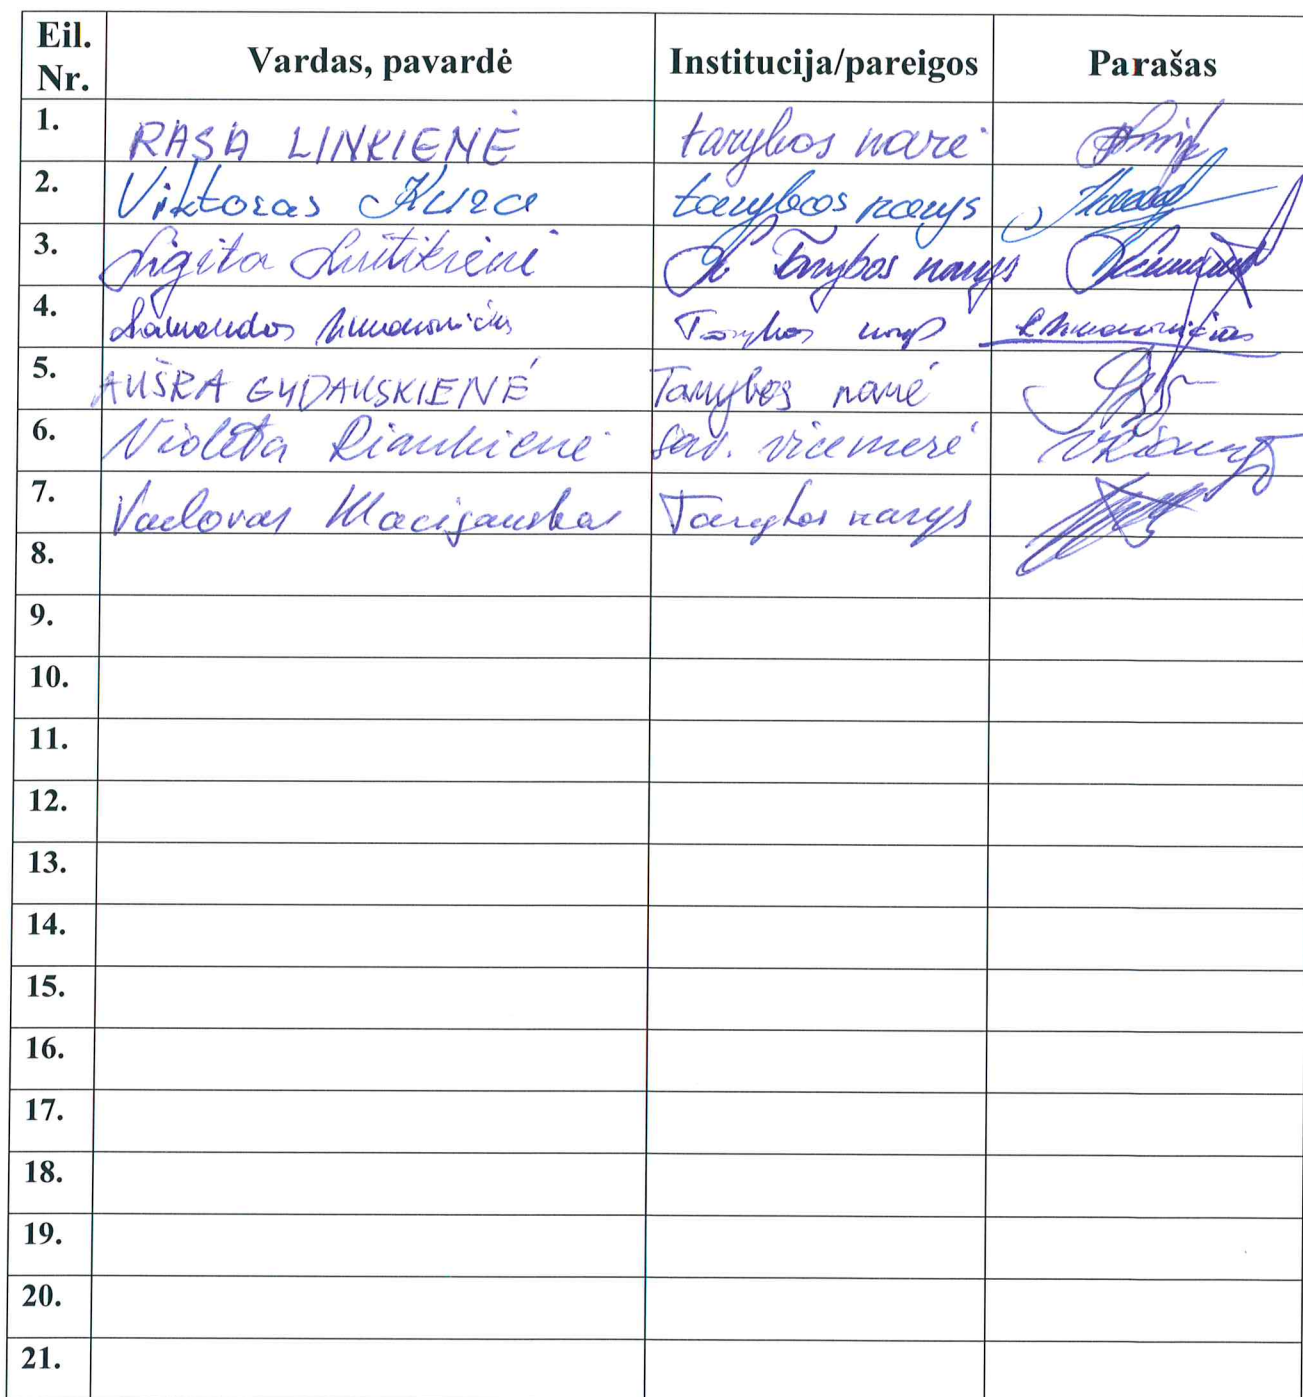 Eil. Nr. Vardas, pavardė Institucija/pareigos Parašas
1. RASA LINKIENĖ tarybos narė
2. Viktoras tarybos narys
3. Ligita Tarybos narys
4. Tarybos narys
5. AUŠRA GUDAUSKIENĖ Tarybos narė
6. Violeta sav. vicemerė
7. Vaclovas Macijauskas Tarybos narys
8.
9.
10.
11.
12.
13.
14.
15.
16.
17.
18.
19.
20.
21.